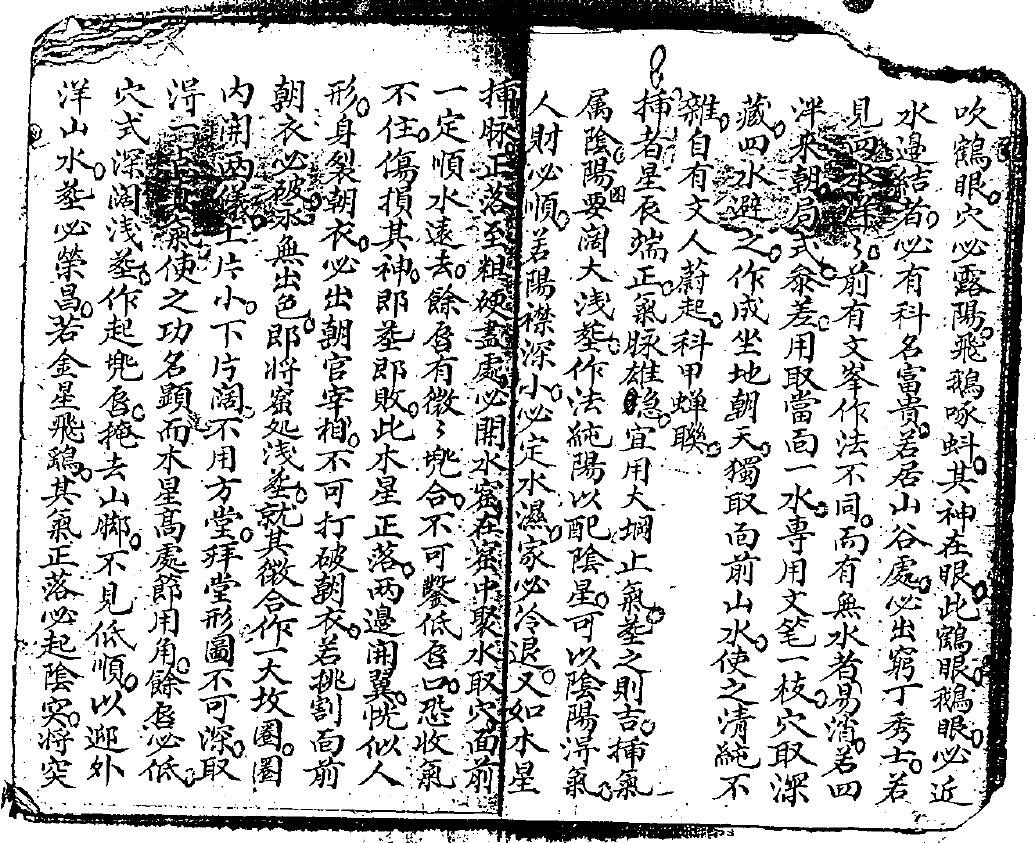 吹鶴眼穴必露陽飛鵝啄蚪其神在眼此鶴眼鵝眼必近
水邉結者必有科名富貴若居山谷處必出窮丁秀士若
見四水洋〻前有文峯作法不同而有無水者易消若四
泮來朝局式叅差用取當面一水專用文笔一枝穴取深
藏四水避之作成坐地朝天獨取面前山水使之清純不
雜自有文人蔚起科甲蝉聮
揷者星辰端正氣脉雄隐宜用大堋止氣塟之則吉揷氣
属陰陽要阔大浅塟作法純陽以配陰星可以陰陽淂氣
人財必順若陽襟深小必定水濕家必冷退又如水星
揷脉正落至粗硬盡處必開水窟在窟中聚水取穴面前
一定順水遠去餘唇有徵〻兠合不可鑿低唇口恐收氣
不住傷損其神即塟即敗此水星正落两邉開翼恍似人
形身裂朝衣必出朝官宰相不可打破朝衣若挑割面前
朝衣必破水無出色即将窟処浅塟就其徵合作一大坟圏圏
内開两儀上片小下片阔不用方堂拜堂形圖不可深取
淂一氣使之功名顕而木星髙處節用角餘唇必低
穴式深阔浅塟作起兠唇掩去山脚不見低順以迎外
洋山水塟必榮昌若金星飛鵝其氣正落必起陰突将突